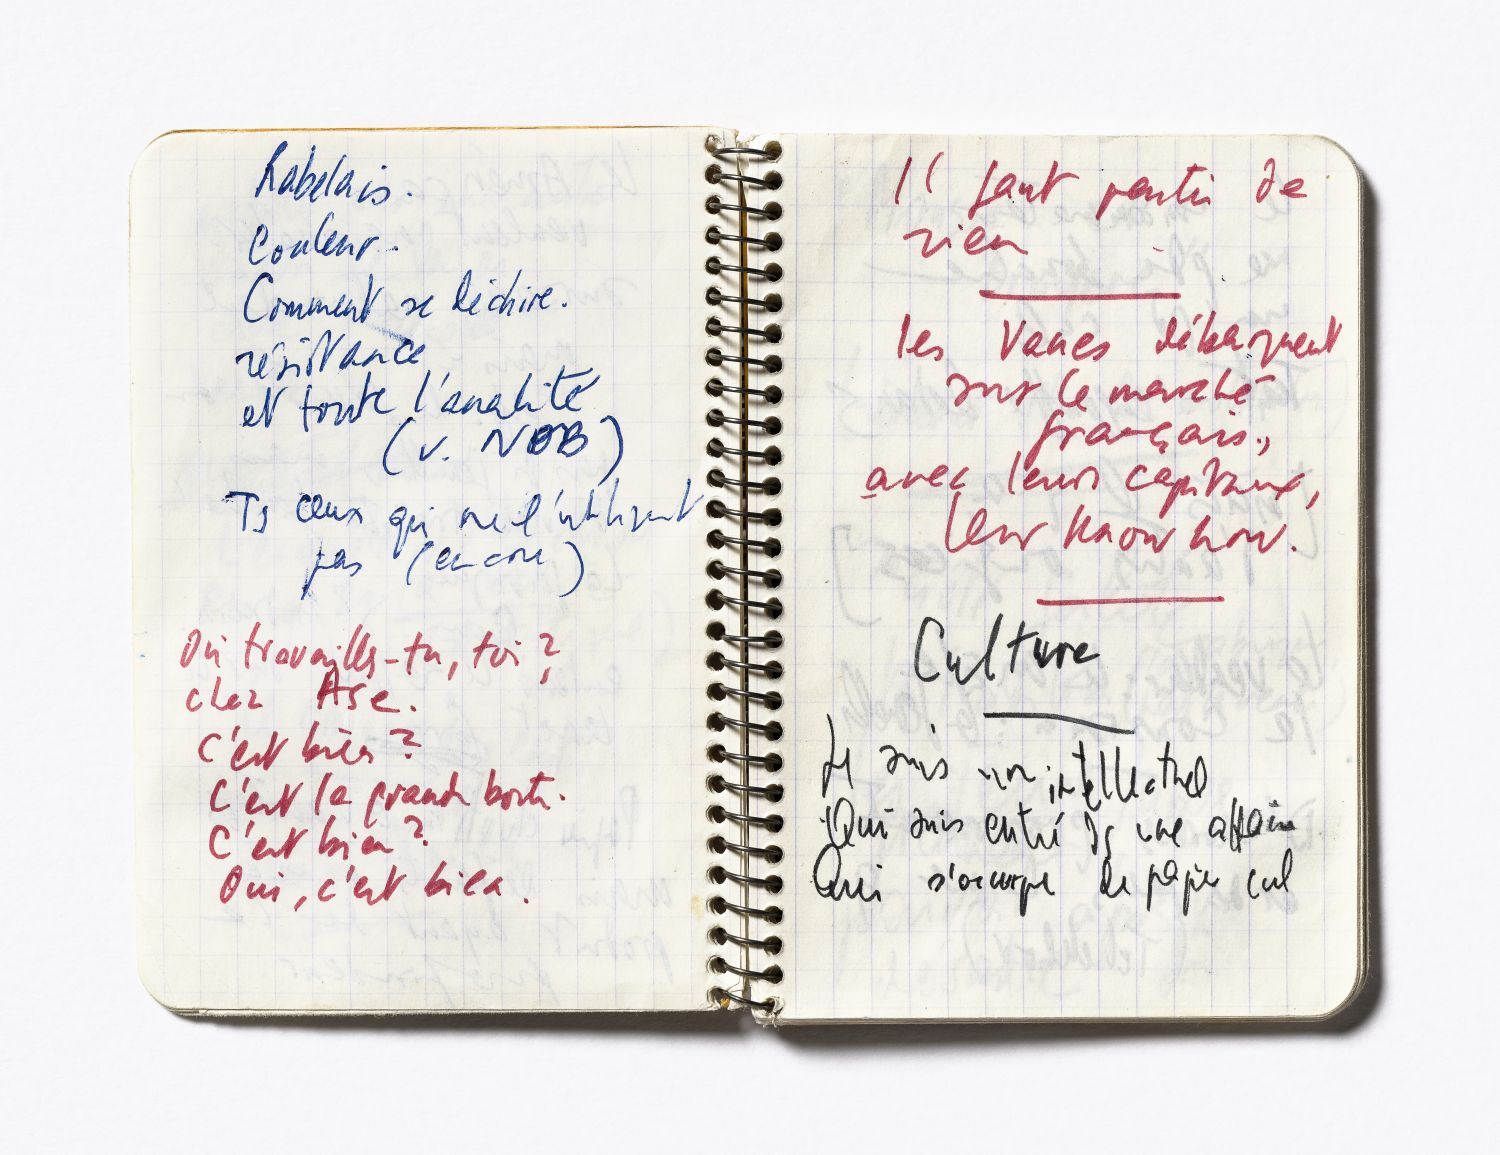 Rabelais.
Couleur.
Comment se déchire.
résistance
et toute l'analité
(v. NOB)
Ts ceux qui ne l'utilisent
pas (encore)
Où travailles-tu, toi?
chez Ase.
C'est bien?
C'est la grande boîte.
C'est bien?
Oui, c'est bien.
Il faut partir de
rien
les Yanes débarquent
sur le marché
français,
avec leurs capitaux,
leur know how.
Culture
Je suis un intellectuel
Qui suis entré ds une affaire
Qui s'occupe de papier cul